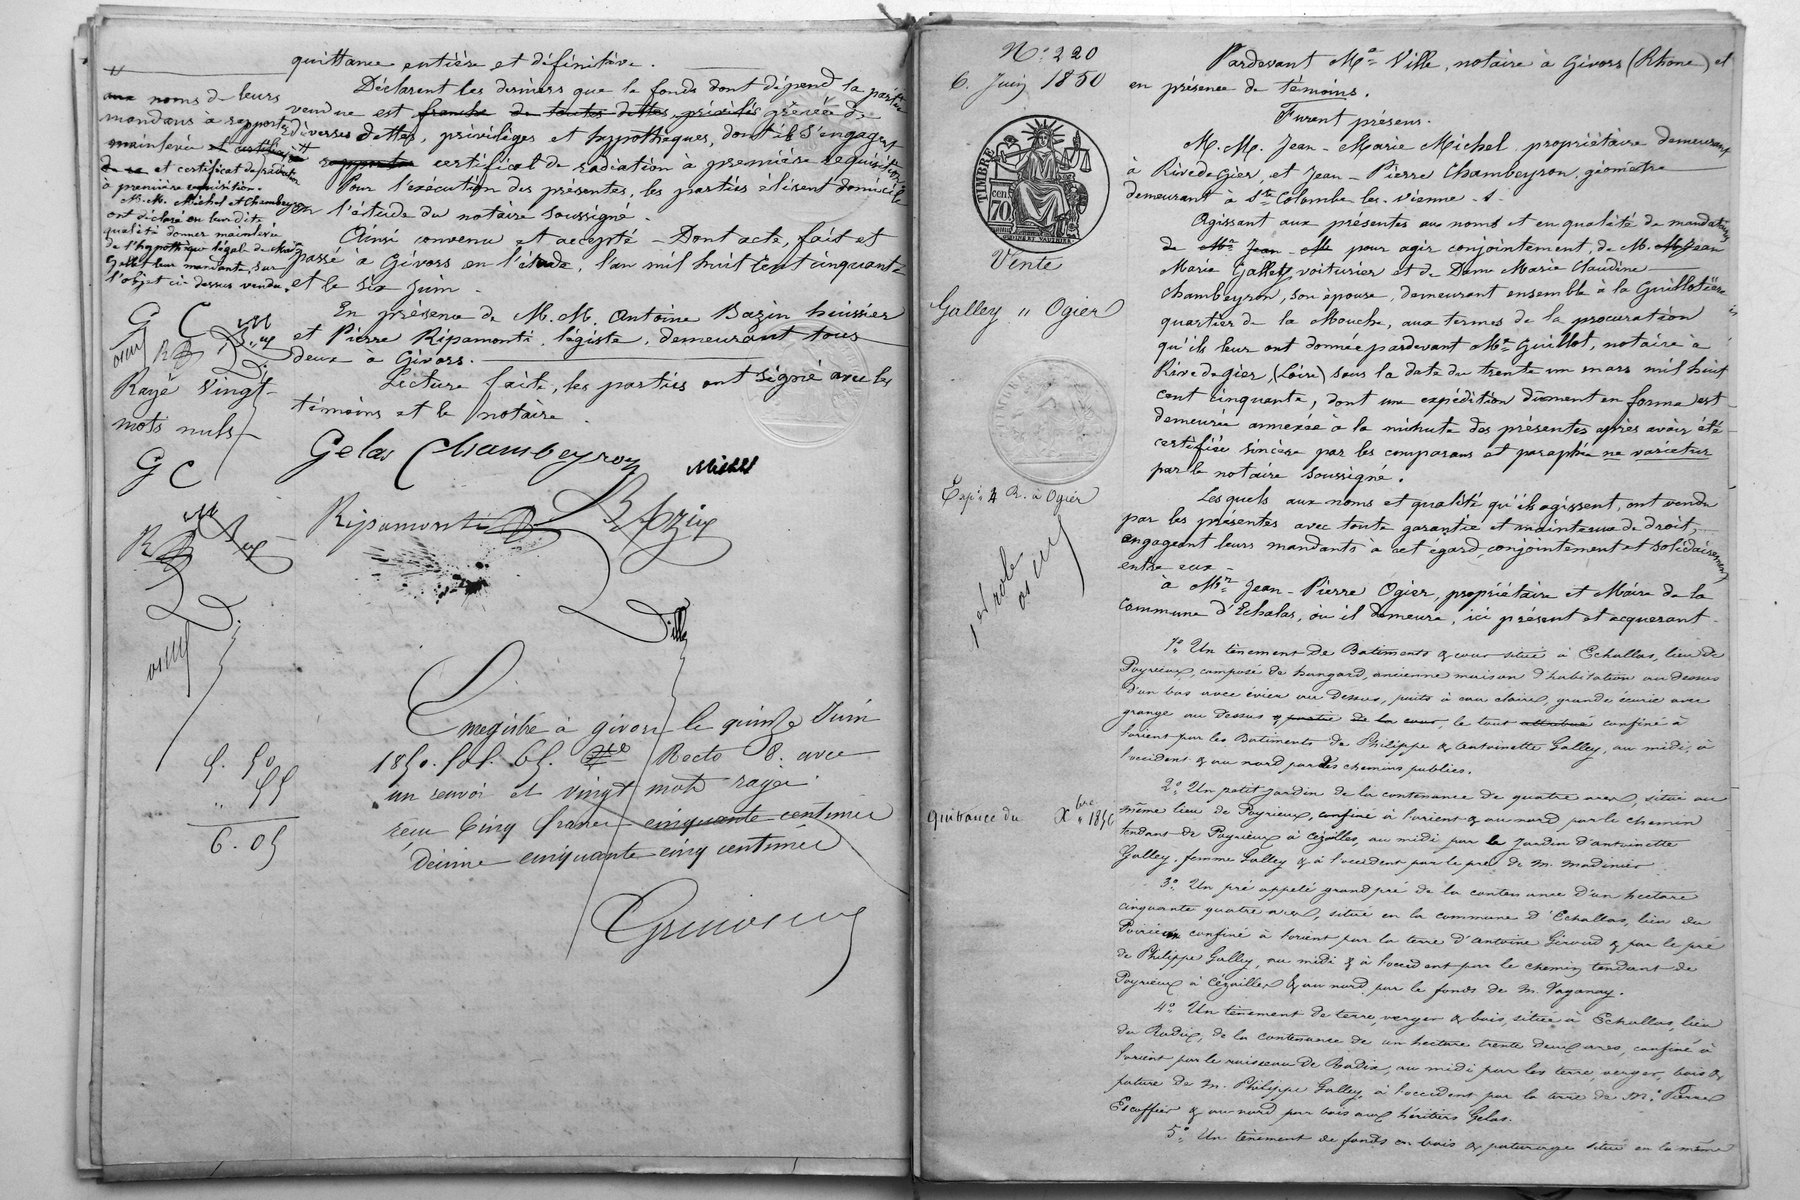 quittance entière et définitive.
Déclarent les derniers que le fonds dont dépend la partie
vendue est franche de toutes dettes, privilèges grévée de
diverses dettes, privilèges et hypothèques, dont ils s'engagent
rapporter certificat de radiation à première réquisition
Pour l'exécution des présentes, les parties élisent domicile
en l'étude du notaire soussigné.
Ainsi convenu et accepté - Dont acte, fait et
passé à Givors en l'étude, l'an mil huit cent cinquante
et le six juin.
En présence de M.M. Antoine Bazin huissier
et Pierre Ripamonti, légiste, demeurant tous
deux à Givors.
Lecture faite, les parties ont signé avec les
témoins et le notaire
aux noms de leurs
mandans à rapporter
mainlevée et certificat
et certificat de radiation
à première réquisition.
M.M. Michel et Chambeyron
ont déclaré en leur dite
qualité donner mainlevée
de l'hypothèque légale de
Galley leur mandante, sur
l'objet ci-dessus vendu.
G C M
Rayé vingt
mots nuls
G C
Gelas Chambeyron Michel
Ripamonti Bazin
Ville
Enregistré à Givors le quinze Juin
1850. fol. 65. Recto C. 8. avec
un renvoi et vingt mots rayés
reçu Cinq francs cinquante centimes
Décime cinquante cinq centimes
5. 50
" 55
6. 05
N° 220
6. Juin 1850
TIMBRE
cen 70
Vente
Galley " Ogier
Exp. 4 R. à Ogier
1 et rôle
Quittance du Xbre 1850
Pardevant Me Ville, notaire à Givors (Rhône) et
en présence de témoins.
Furent présens.
M.M. Jean-Marie Michel, propriétaire demeurant
à Rivedegier, et Jean-Pierre Chambeyron, géomètre
demeurant à Ste Colombe-les-Vienne.
Agissant aux présentes au noms et en qualité de mandataires
de Mr Jean pour agir conjointement de M. Jean
Marie Galley voiturier et de Dame Marie Claudine
Chambeyron, son épouse, demeurant ensemble à la Guillotière
quartier de la Mouche, aux termes de la procuration
qu'ils leur ont donnée pardevant Me Guillot, notaire à
Rivedegier, (Loire) sous la date du trente un mars mil huit
cent cinquante, dont une expédition dûment en forme est
demeurée annexée à la minute des présentes après avoir été
certifiée sincère par les comparans et paraphée ne varietur
par le notaire soussigné.
Lesquels aux noms et qualité qu'ils agissent, ont vendu
par les présentes avec toute garantie et maintenue de droit,
engageant leurs mandants à cet égard, conjointement et solidairement
entre eux
à Mr Jean-Pierre Ogier, propriétaire et Maire de la
commune d'Echalas, où il demeure, ici présent et acquerant
1° Un tènement de Batiments & cour situé à Echallas, lieu de
Poyrieux, composé de hangard, ancienne maison d'habitation au dessus
d'un bas avec évier au dessus, puits à eau claire, grande écurie avec
grange au dessus & partie de la cour, le tout attribué confiné à
l'orient par les Batiments de Philippe & Antoinette Galley, au midi, à
l'occident & au nord par des chemins publics.
2° Un petit jardin de la contenance de quatre ares, situé au
même lieu de Poyrieux, confiné à l'orient & au nord par le chemin
tendant de Poyrieux à Cézailles, au midi par le Jardin d'antoinette
Galley, femme Galley & à l'occident par le pré de M. Madinier
3° Un pré appelé grand pré de la contenance d'un hectare
cinquante quatre ares, situé en la commune d'Echallas, lieu du
Poirieux confiné à l'orient par la terre d'antoine Giroud & par le pré
de Philippe Galley, au midi & à l'occident par le chemin tendant de
Poyrieux à Cézailles, & au nord par le fonds de M. Vaganay.
4° Un tènement de terre, verger & bois, située à Echallas, lieu
du Radix, de la contenance de un hectare trente deux ares, confiné à
l'orient par le ruisseau de Radix, au midi par les terre, verger, bois &
pature de M. Philippe Galley, à l'occident par la terre de M. Pierre
Escoffier & au nord par bois aux héritiers Gelas.
5° Un tènement de fonds en bois & paturage situé en la même